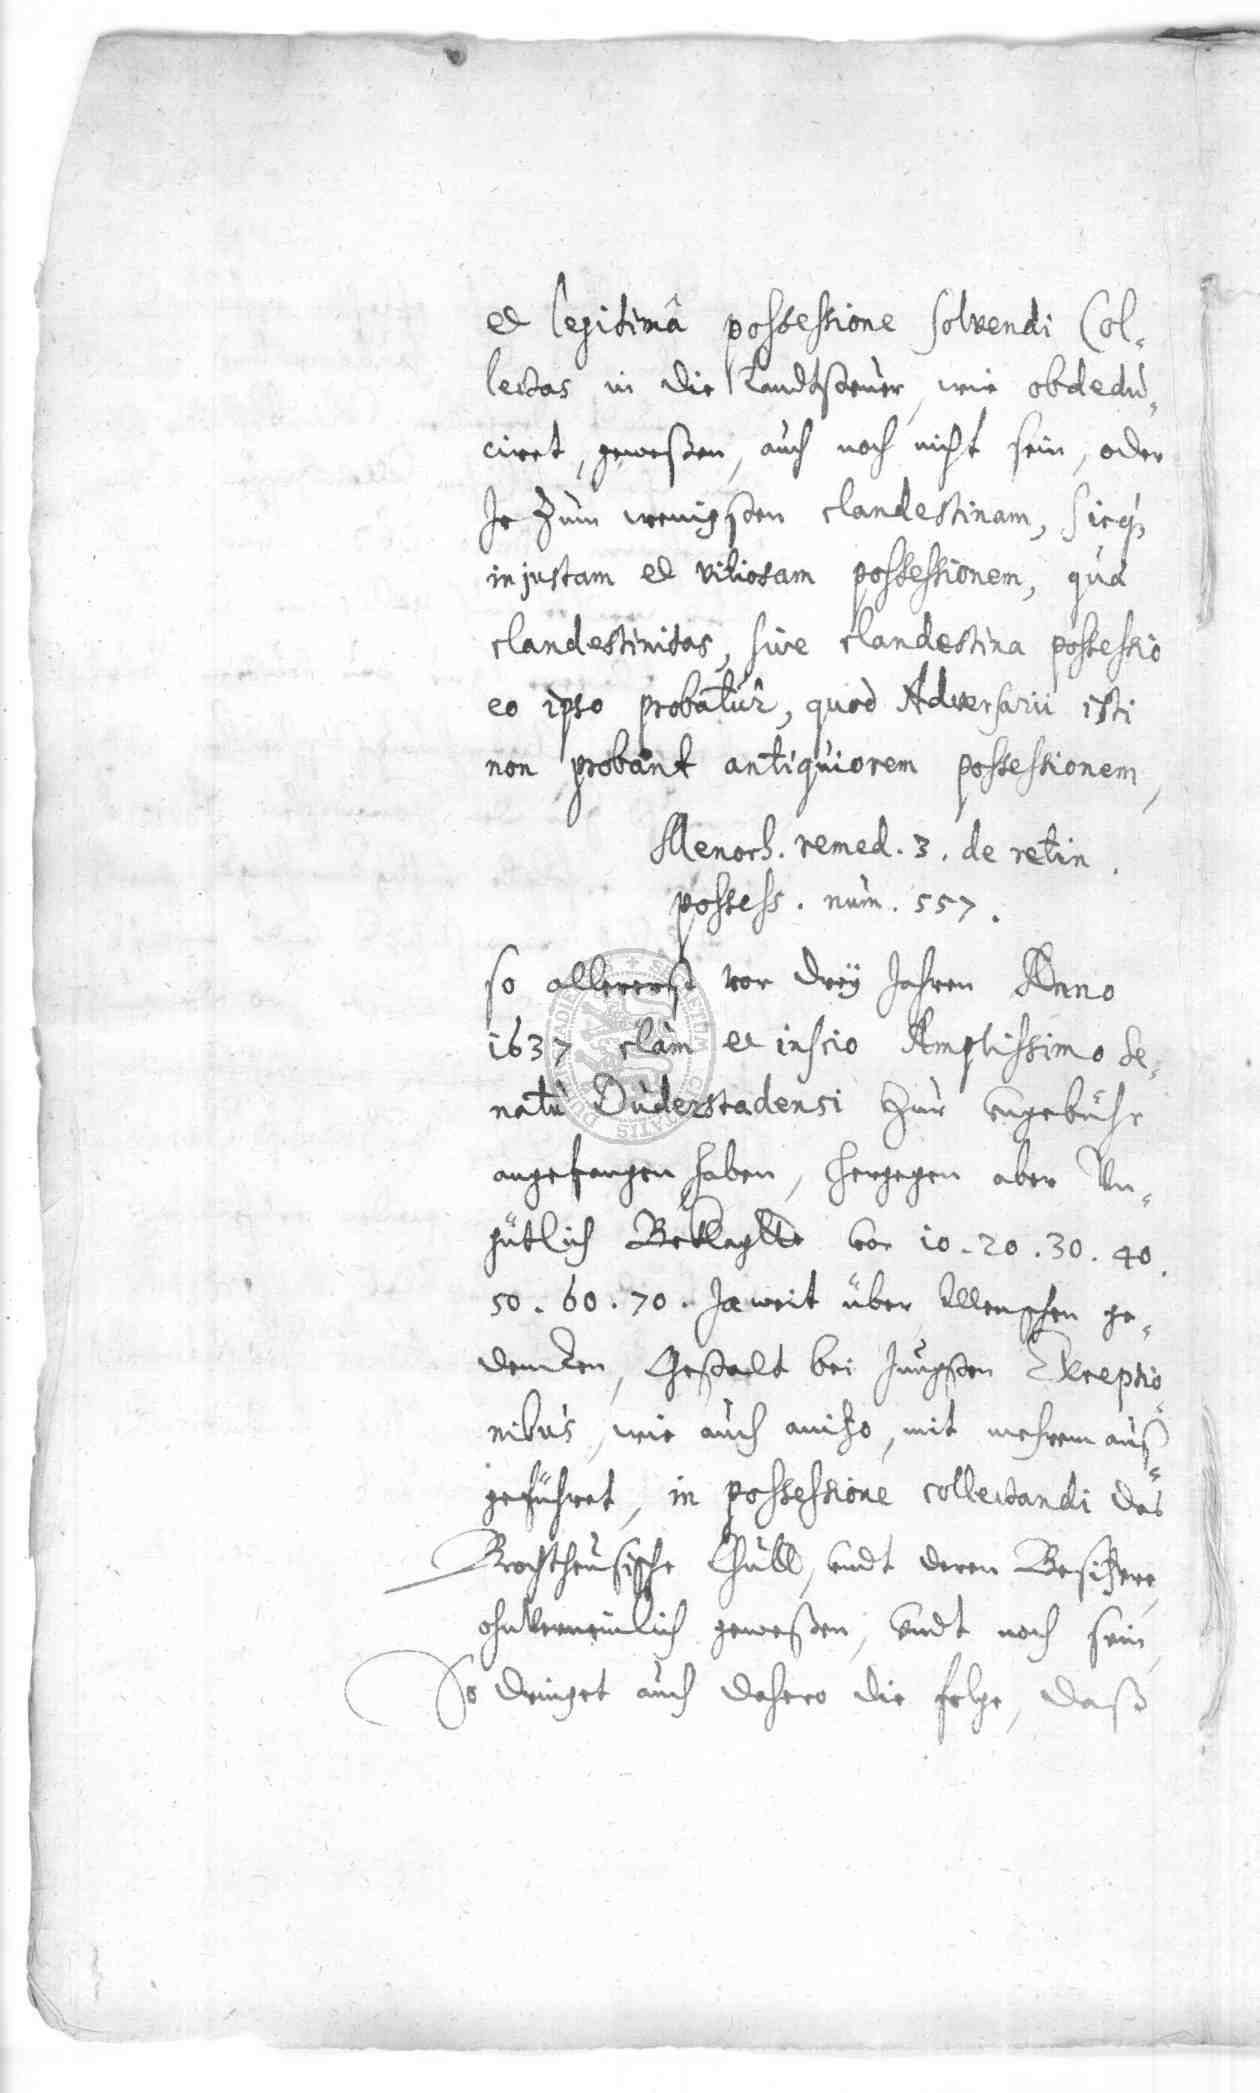 et legitimâ possessione solvendi Col-
lectas in die Landtsteuer, wie obdedu-
ciret, geweßen, auch noch nicht sein, oder
Je zum wenigsten clandestinam, sicq,
injustam et vitiosam possessionem, quâ
clandestinitas, sive clandestina possessio
eo ipso probatur, quod Adversarii isti
non probant antiquiorem possessionem,
Menoch. remed. 3. de retin.
possess. num. 557.
so allererst vor dreÿ Jahren Anno
1637 clàm et inscio Amplissimo Se-
natu Duderstadensi zur ungebühr
angefangen haben, hergegen aber Un-
gütlich Beklagte vor 10. 20. 30. 40.
50. 60. 70. Ja weit über Menschen ge-
dencken, Gestalt bei Jungsten Exceptio-
nibus, wie auch anitzo, mit mehrem aus-
geführet, in possessione collectandi das
Brochtheusische Guett, undt deren Besitzere,
ohnverneinlich geweßen, undt noch sein,
So dringet auch dahero die folge, daß
DUDERSTADIENSIS CIVITATIS